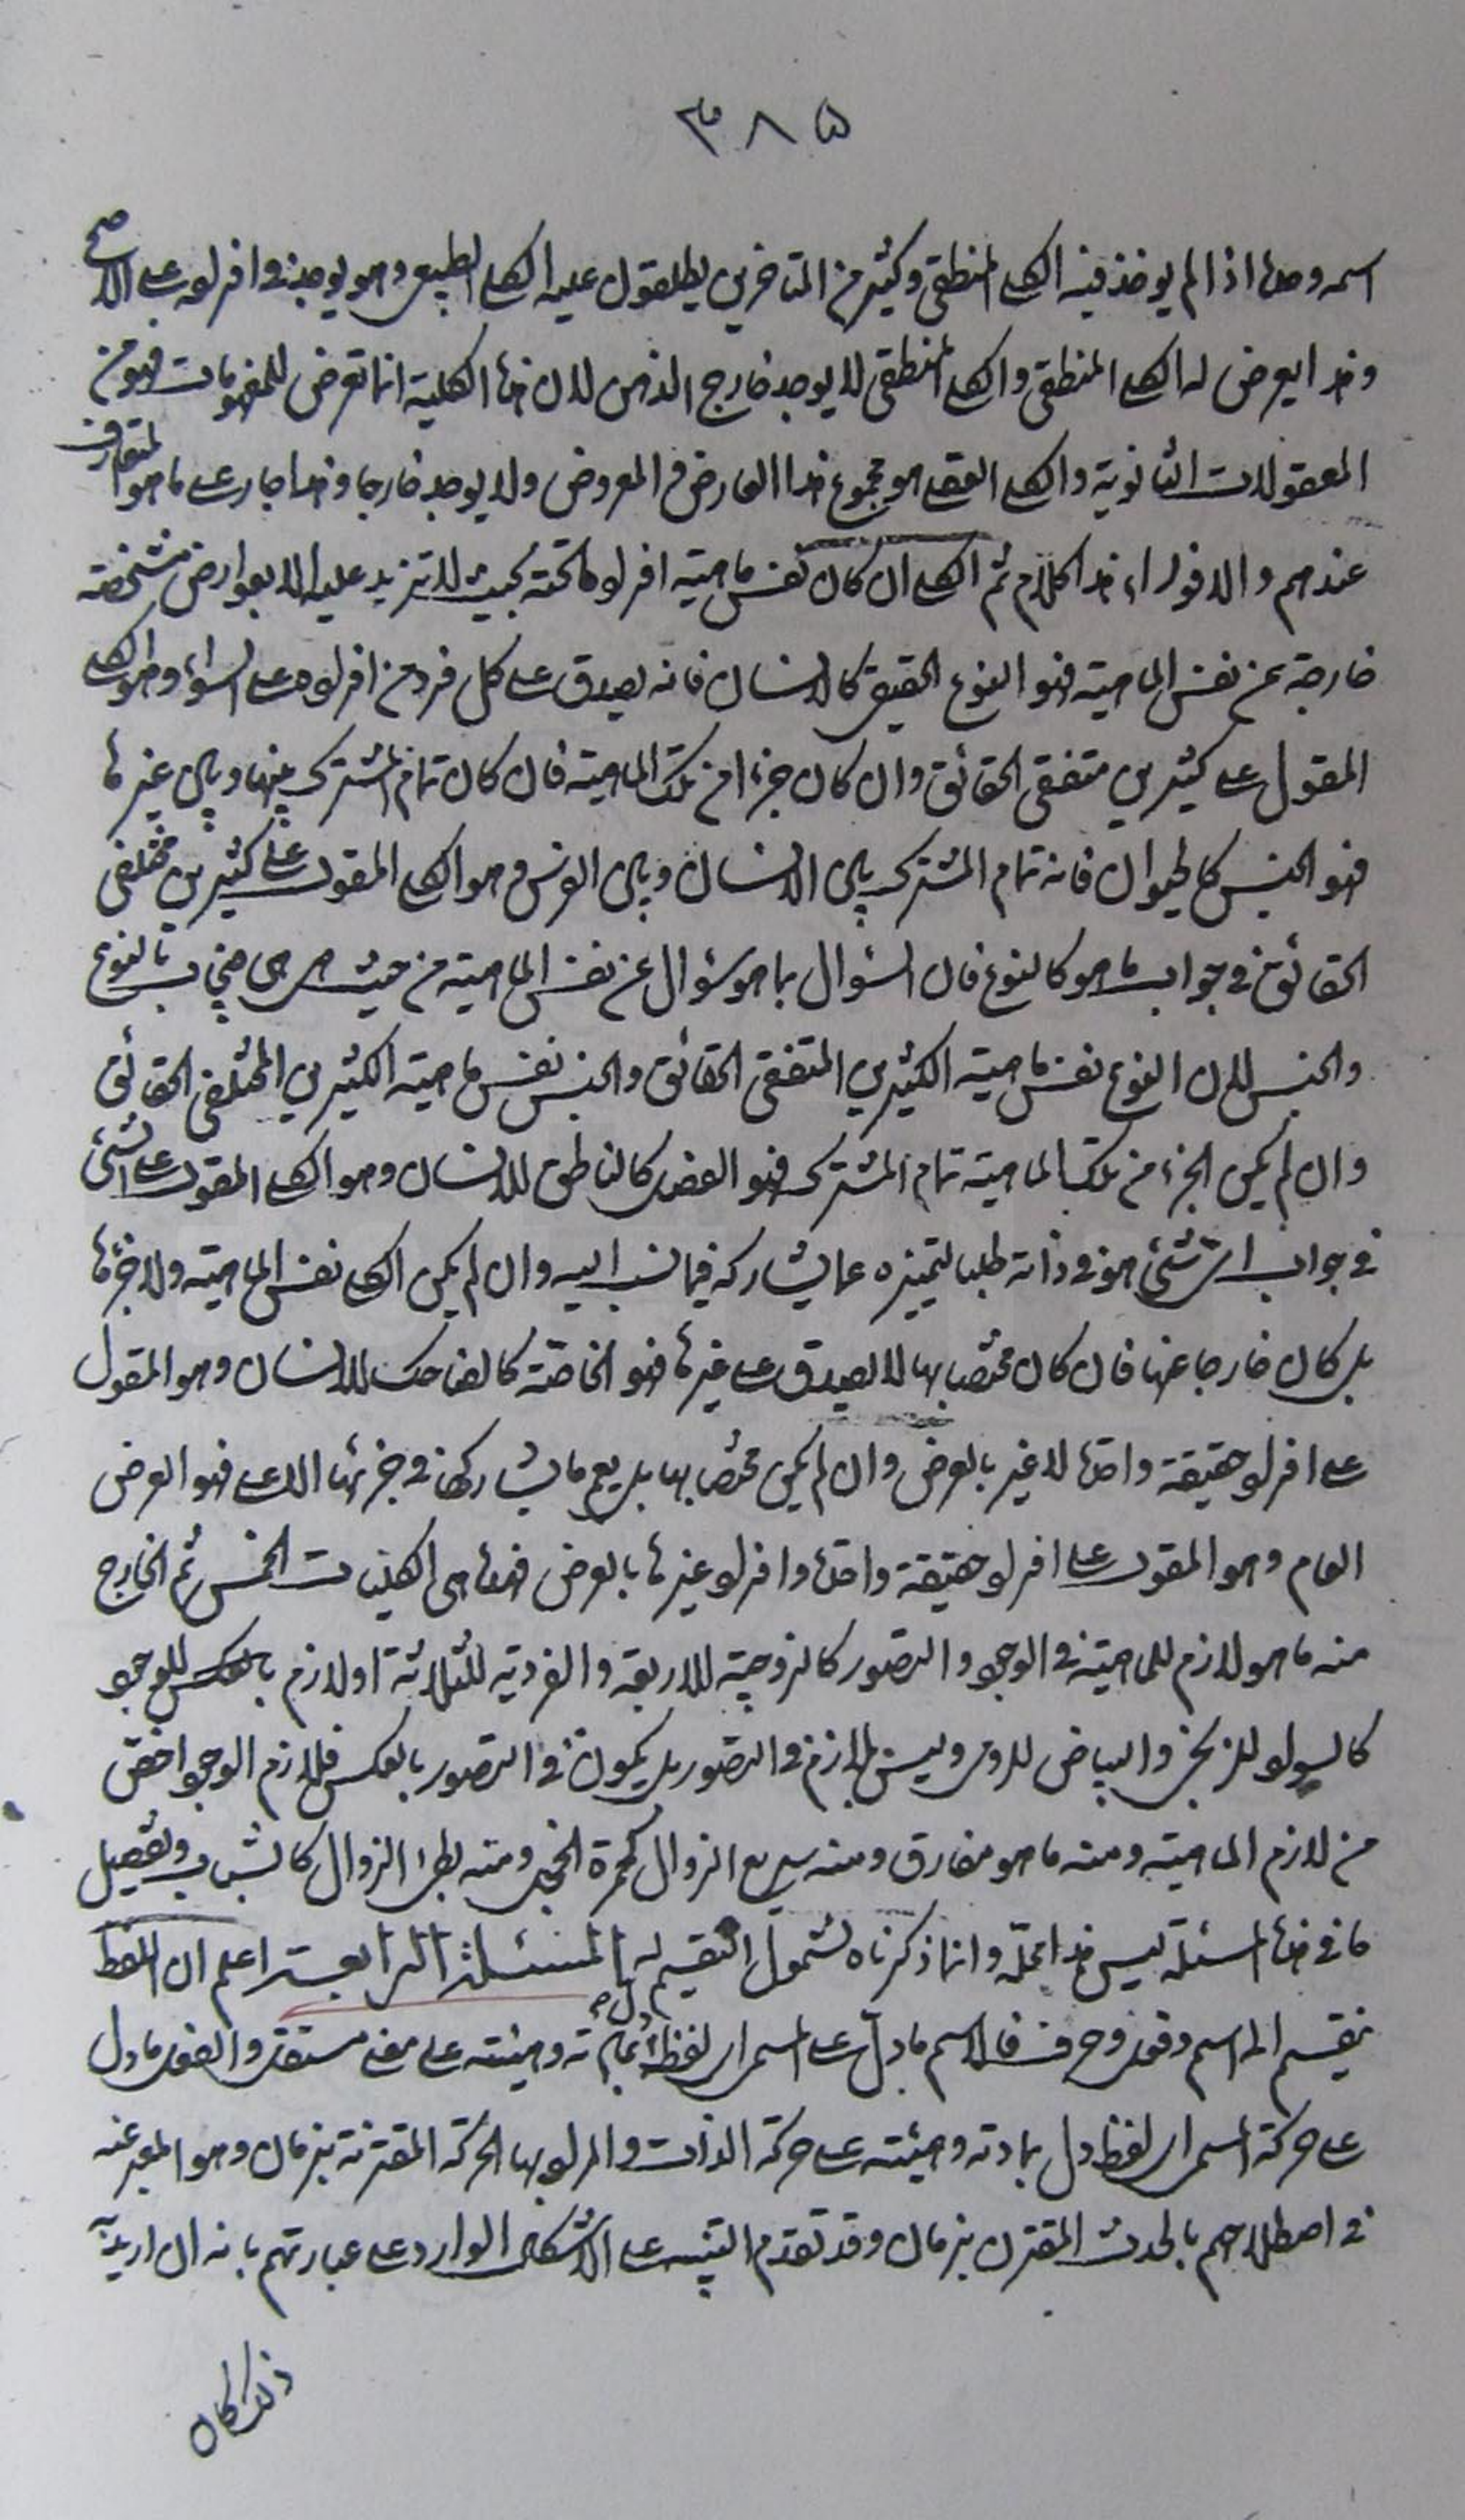 ٣٨٥
اسمه وحده اذا لم يوخذ فيه الكلى المنطقى وكثير من المتاخرين يطلقون عليه الكلى الطبيعى وهو يوجد فى افراده على الاصح
وهذا يعرض له الكلى المنطقى والكلى المنطقى لا يوجد خارج الذهن لان هذه الكلية انما تعرض للمفهومات فهو من
المعقولات الثانوية والكلى العقلى هو مجموع هذا العارض والمعروض ولا يوجد خارجا وهذا جار على ما هو المتعارف
عندهم والا فوراء هذا كلام ثم الكلى ان كان نفس ماهية افراد ما تحته بحيث لا تزيد عليه الا بعوارض مشخصة
خارجة عن نفس الماهية فهو النوع الحقيقى كالانسان فانه يصدق على كل فرد من افراده على السواء وهو الكلى
المقول على كثيرين متفقى الحقائق وان كان جزءا من تلك الماهية فان كان تمام المشترك بينها وبين غيرها
فهو الجنس كالحيوان فانه تمام المشترك بين الانسان وبين الفرس وهو الكلى المقول على كثيرين مختلفى
الحقائق فى جواب ما هو كالنوع فان السؤال بما هو سؤال عن نفس الماهية من حيث هى هى فيجاب بالنوع
والجنس لان النوع نفس ماهية الكثيرين المتفقى الحقائق والجنس نفس ماهية الكثيرين المختلفى الحقائق
وان لم يكن الجزء من تلك الماهية تمام المشترك فهو الفصل كالناطق للانسان وهو الكلى المقول على الشئ
فى جواب اى شئ هو فى ذاته طلبا لتميزه عما يشاركه فيما نسب اليه وان لم يكن الكلى نفس الماهية ولا جزءها
بل كان خارجا عنها فان كان مختصا بها لا يصدق على غيرها فهو الخاصة كالضاحك للانسان وهو المقول
على افراد حقيقة واحدة لا غير بالعرض وان لم يكن مختصا بها بل يعم ما يشاركها فى جزئها الاعلى فهو العرض
العام وهو المقول على افراد حقيقة واحدة وافراد غيرها بالعرض فهذه هى الكليات الخمس ثم الخارج
منه ما هو لازم للماهية فى الوجود والتصور كالزوجية للاربعة والفردية للثلاثة او لازم بالعكس للوجود
كالسواد للزنجى والبياض للرومى وليس بلازم فى التصور بل يكون فى التصور بالعكس فلازم الوجود اخص
من لازم الماهية ومنه ما هو مفارق ومنه سريع الزوال كحمرة الخجل ومنه بطئ الزوال كالشباب وتفصيل
ما فى هذه المسئلة ليس هذا محله وانما ذكرناه لشمول التقسيم له المسئلة الرابعة اعلم ان اللفظ
ينقسم الى اسم وفعل وحرف فالاسم ما دل على المسمى اى لفظ دل بمادته وهيئته على معنى مستقل والفعل ما دل
على حركة المسمى اى لفظ دل بمادته وهيئته على حركة الذات والمراد بها الحركة المقترنة بزمان وهو المعبر عنه
فى اصطلاحهم بالحدث المقترن بزمان وقد تقدم التنبيه على الاشكال الوارد على عبارتهم بانه ان اريد به
ذلك كان